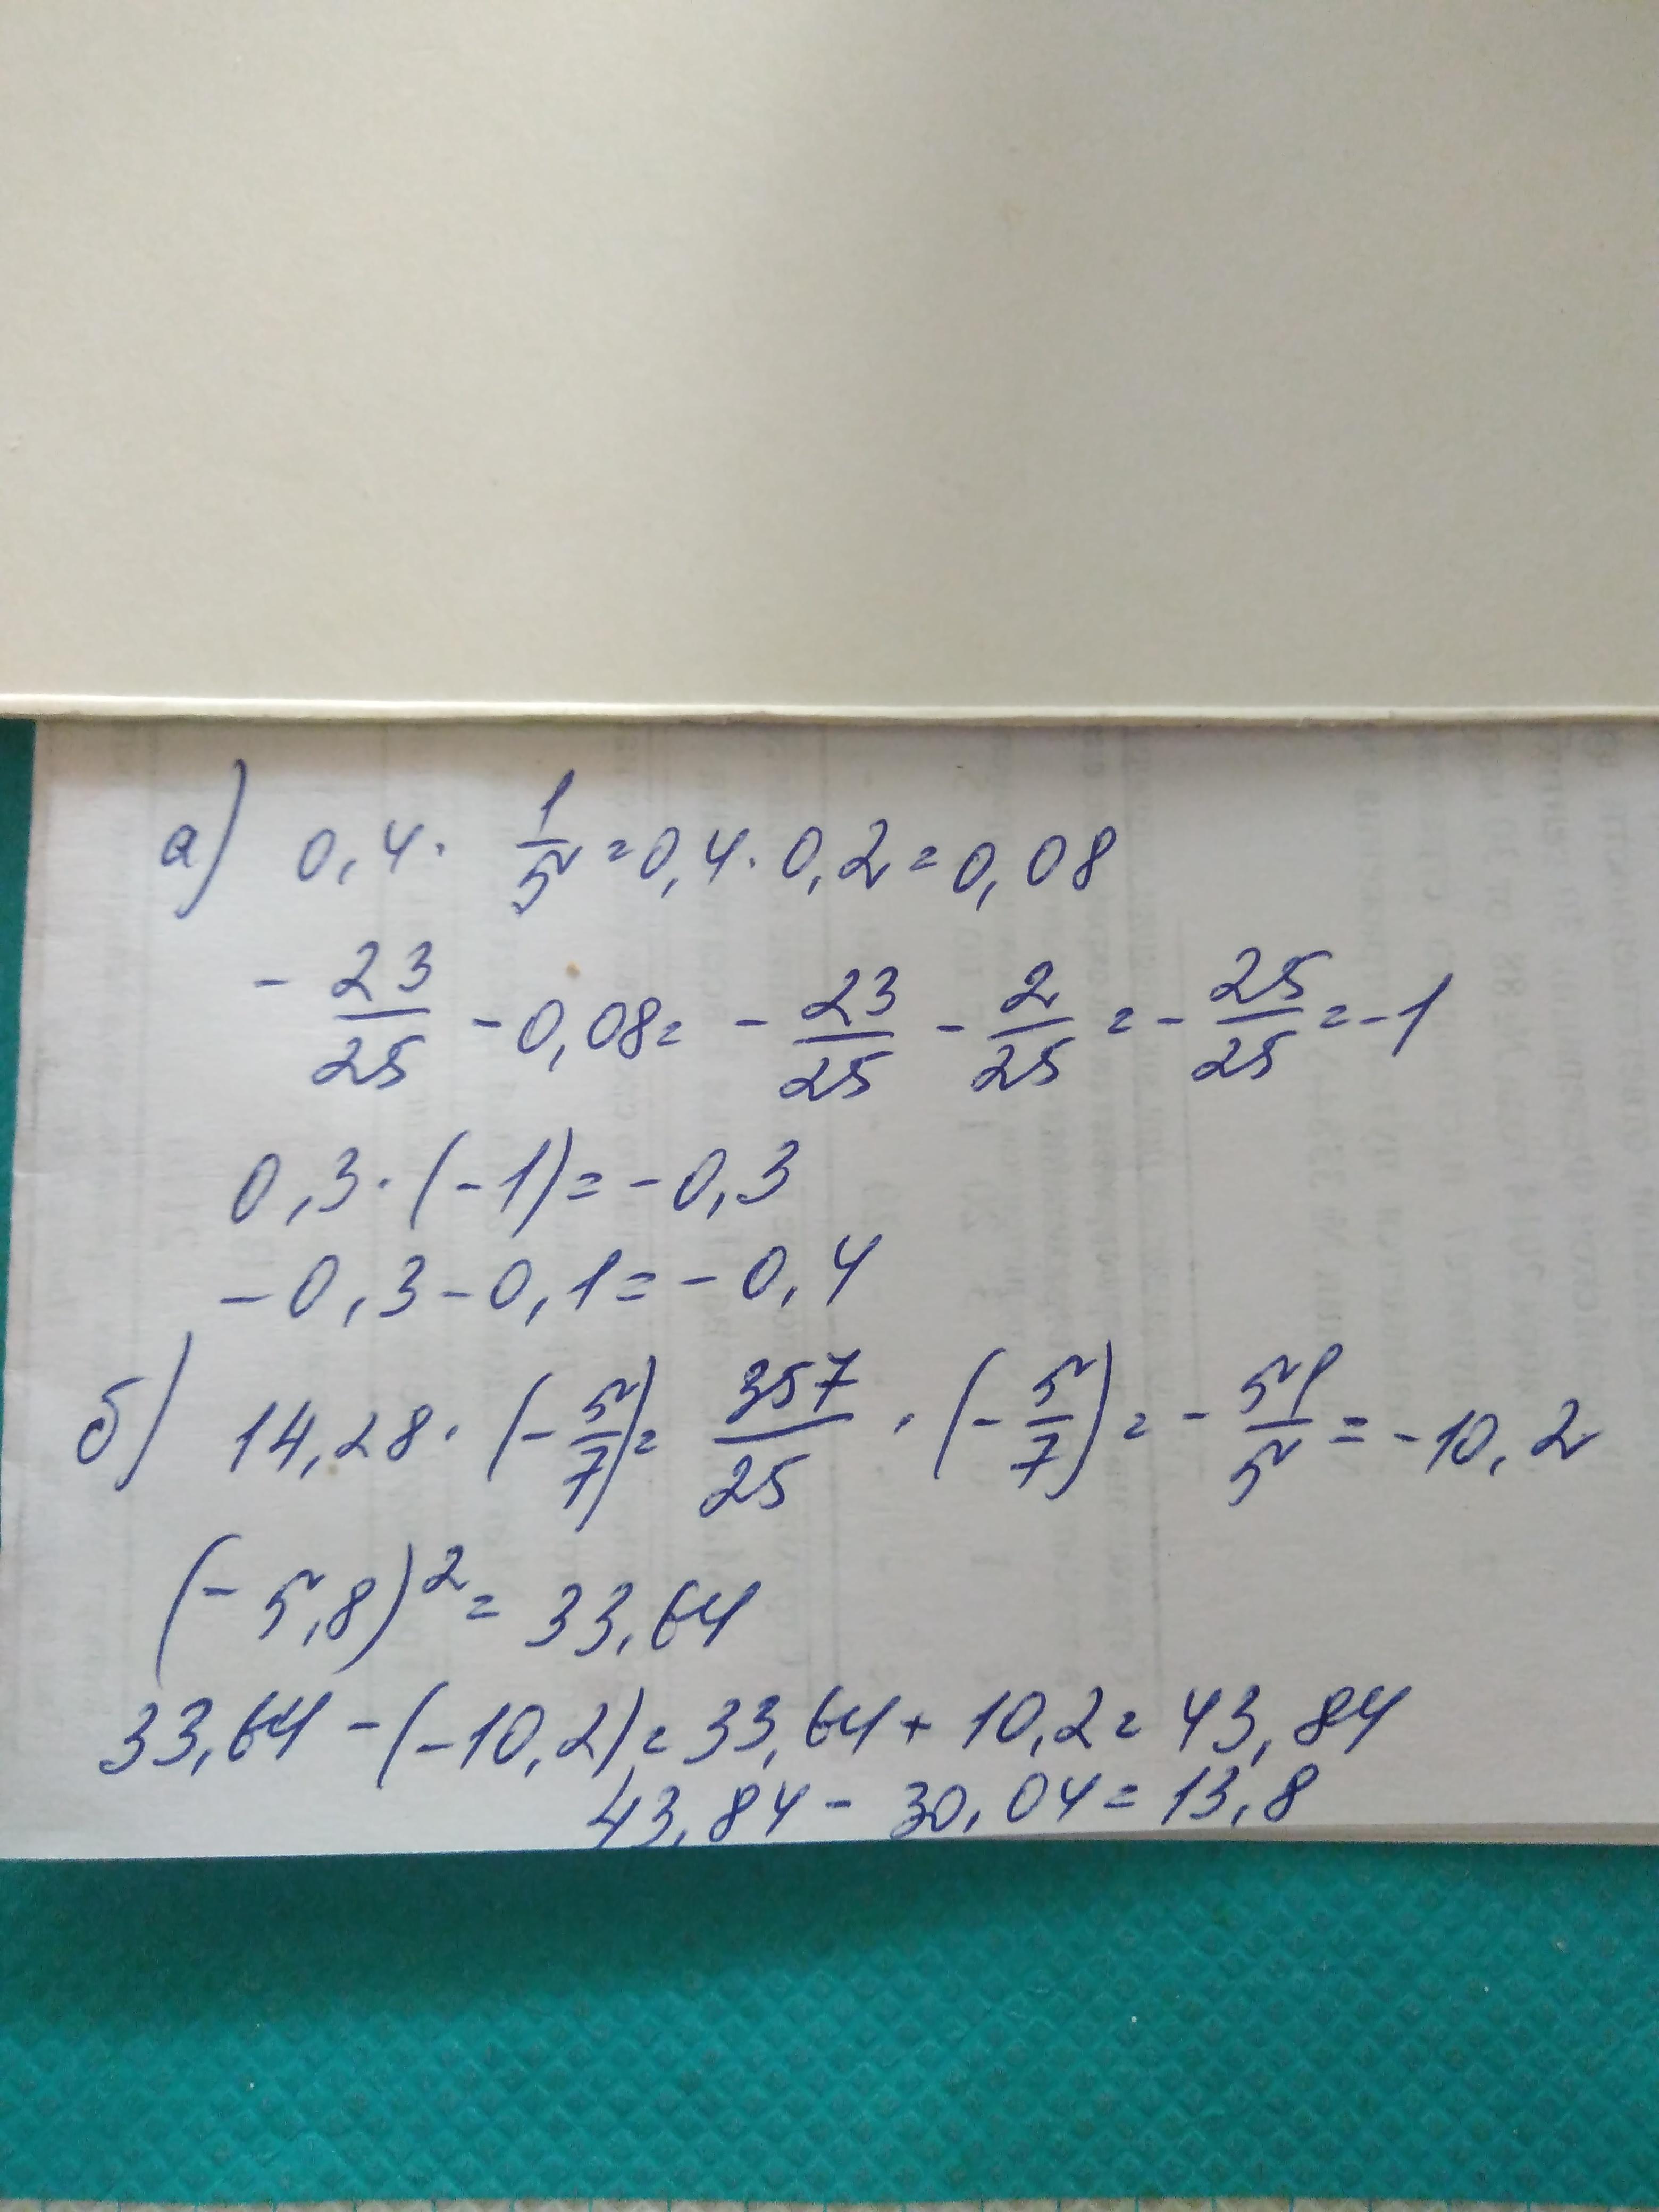 а) 0,4 · 1/5 = 0,4 · 0,2 = 0,08
- 23/25 - 0,08 = - 23/25 - 2/25 = - 25/25 = -1
0,3 · (-1) = -0,3
-0,3 - 0,1 = -0,4
б) 14,28 · (- 5/7) = 357/25 · (- 5/7) = - 51/5 = -10,2
(- 5,8)² = 33,64
33,64 - (-10,2) = 33,64 + 10,2 = 43,84
43,84 - 30,04 = 13,8